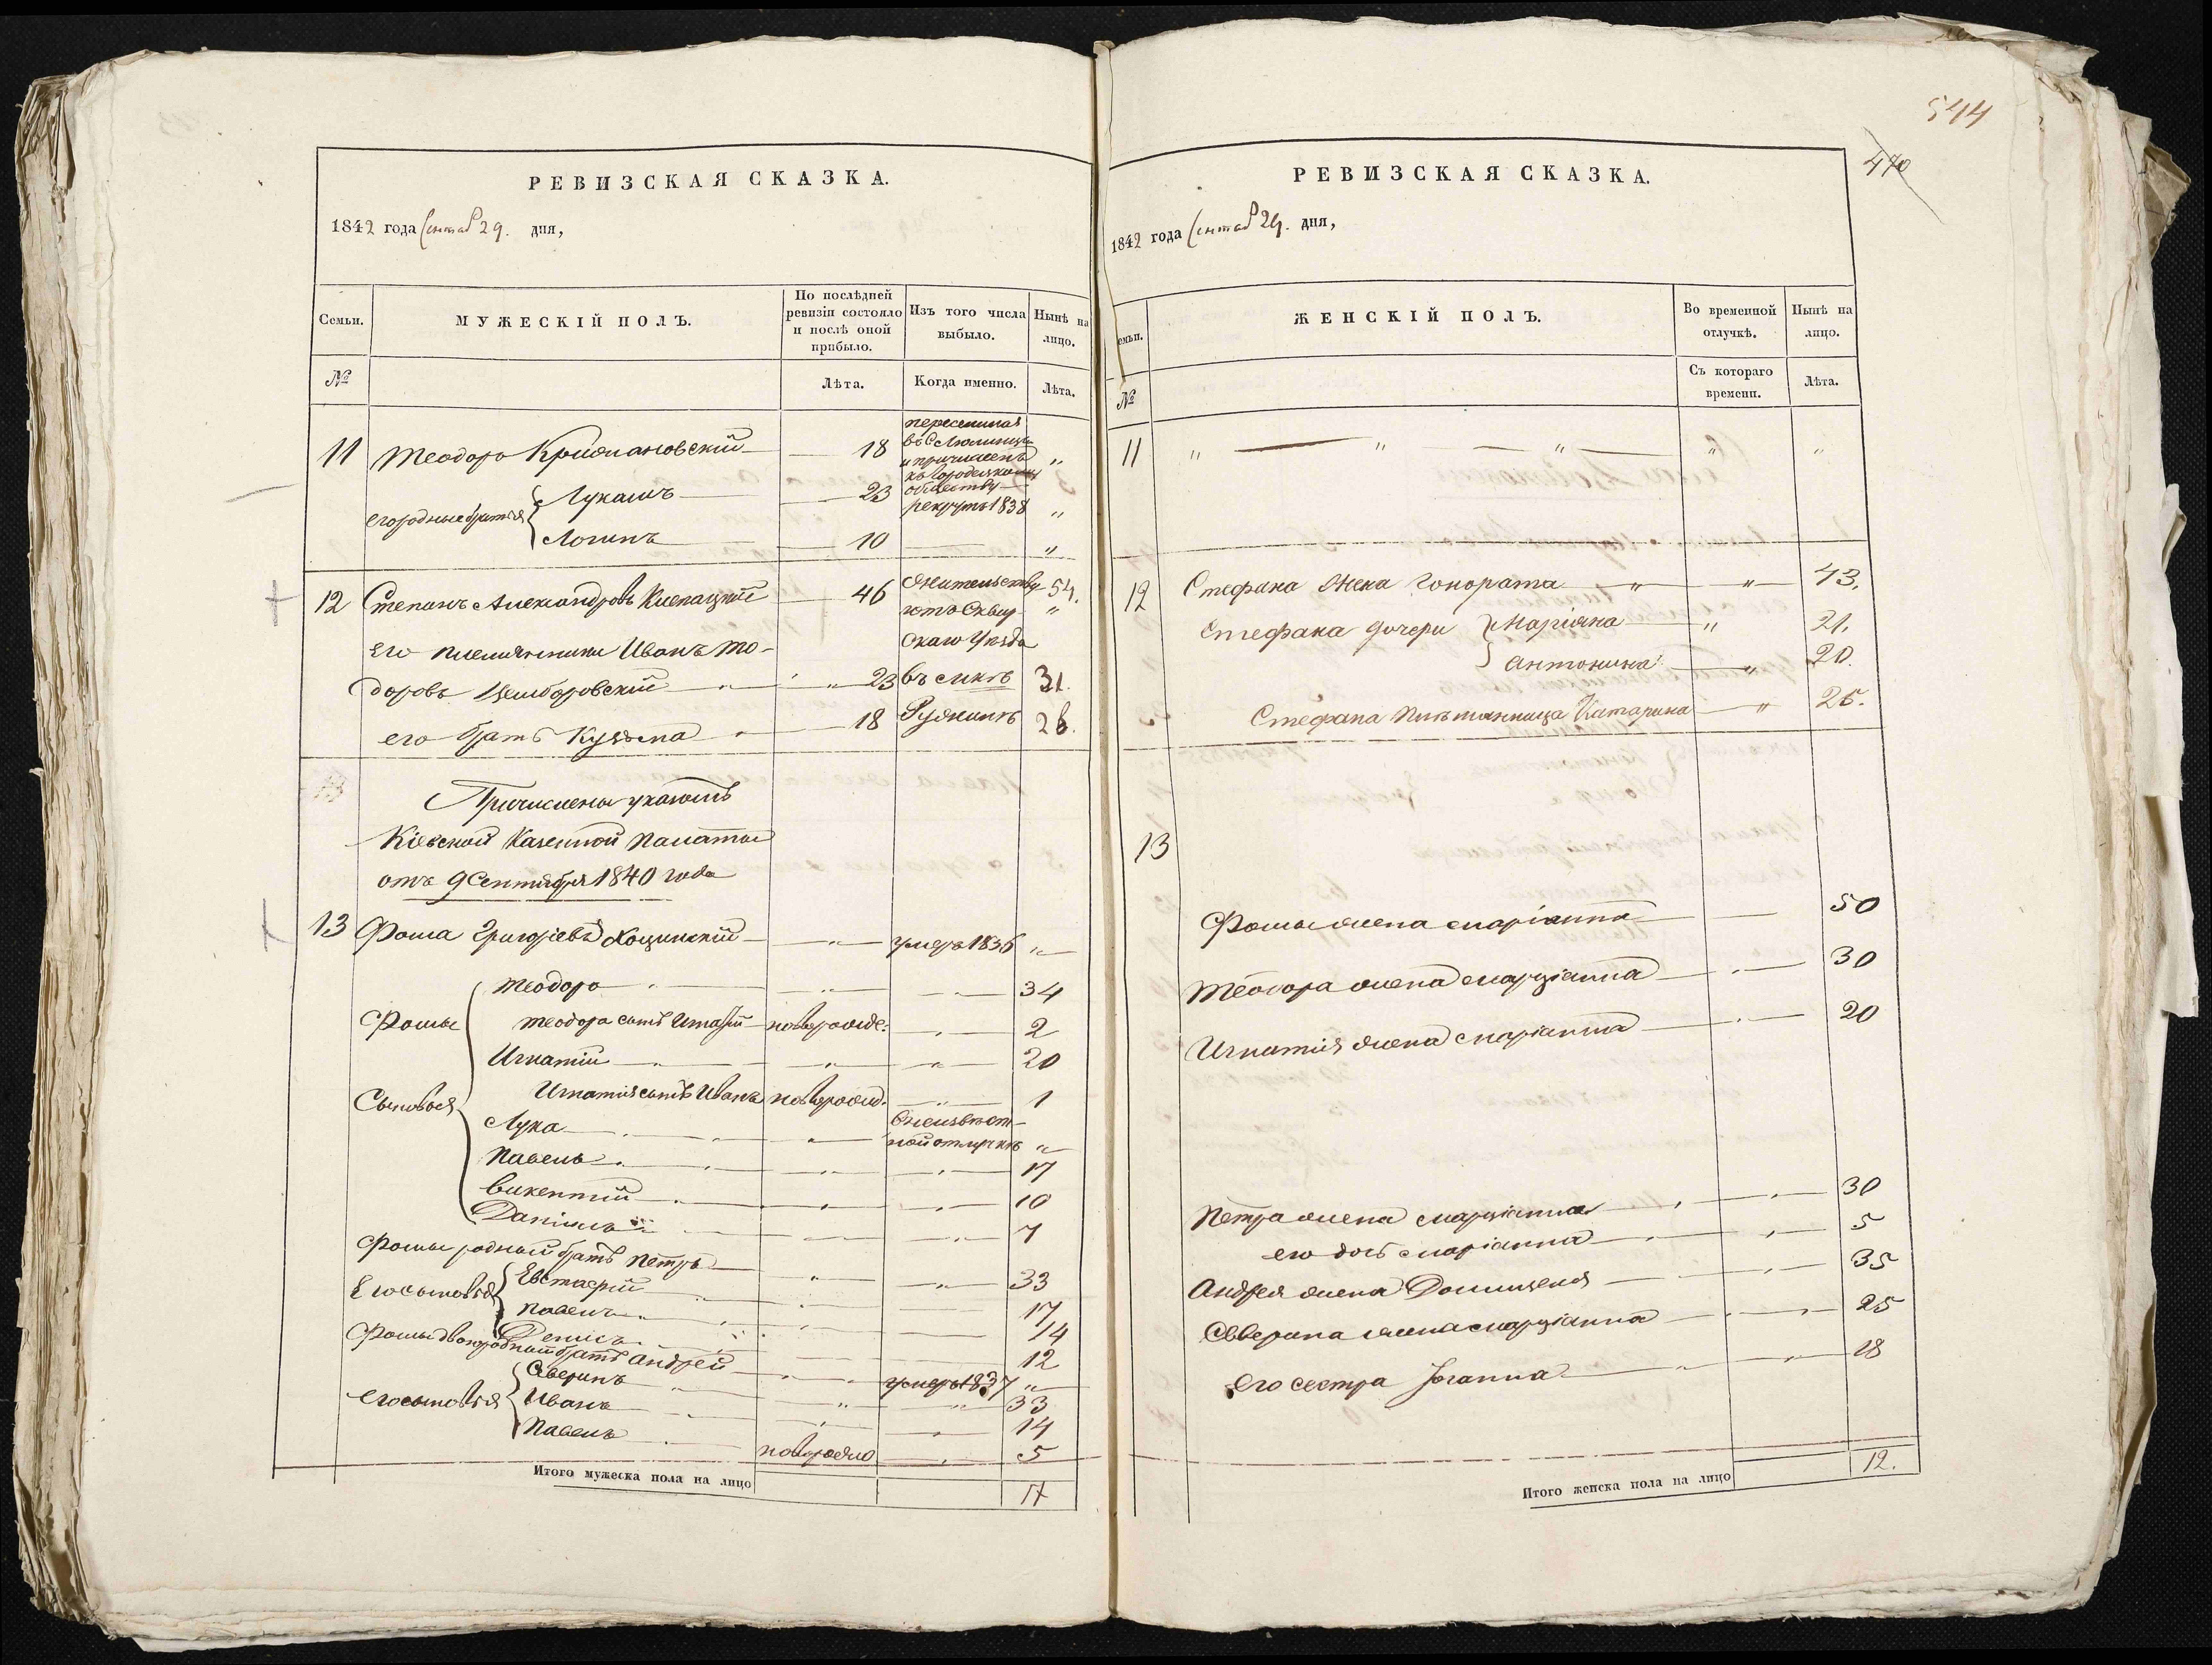 544
470
РЕВИЗСКАЯ СКАЗКА.
1842 года Сентяб 29. дня,
Семьи.
МУЖЕСКІЙ ПОЛЪ.
По послѣдней ревизіи состояло и послѣ оной прибыло.
Изъ того числа выбыло.
Нынѣ на лицо.
№
Лѣта.
Когда именно.
Лѣта.
11 Теодоръ 18 "
его родные братья Лукашъ 23 рекрутъ 1838 "
Логинъ 10 "
12 Степанъ Александровъ 46 жительству 54.
ютъ Сквир "
его племянники Иванъ Тo- скаго Уѣзда
доровъ 23 въ 31.
его братъ Кузьма 18 28.
Причислены указомъ
Кіевской Казенной Палаты
отъ 9 Сентября 1840 года
13 Фома Григорьевъ Коцинскій " умеръ 1836 "
Фомы Сыновья
Теодоръ " 34
Теодора сынъ новорожде: 2
Игнатій " " 20
Игнатія сынъ Иванъ новорожд. 1
Лука " въ неизвѣст-
ной отлучкѣ "
Павелъ " 17
Викентій " 10
Даніилъ " 7
Фомы родный братъ Петръ " 33
Его сыновья Евстафій 17
Павелъ 14
Денисъ 12
Фомы двоюродный братъ Андрей умеръ 1837 "
его сыновья Северинъ " 33
Иванъ 14
Павелъ новорожд 5
Итого мужеска пола на лицо 17
РЕВИЗСКАЯ СКАЗКА.
1842 года Сентяб 29. дня,
Семьи.
ЖЕНСКІЙ ПОЛЪ.
Во временной отлучкѣ.
Нынѣ на лицо.
№
Съ котораго времени.
Лѣта.
11 " " " " "
12 Стефана жена Гонората " " 43.
Стефана дочери Маріяна " 21.
Антонина " 20.
Стефана племянница Катарина " 25.
13
Фомы жена Маріанна 50
Теодора жена Марціанна 30
Игнатія жена Маріанна 20
Петра жена Марціанна 30
его дочь Маріанна 5
Андрея жена Доминцеля 35
Северина жена Марціанна 25
его сестра Іоганна 18
Итого женска пола на лицо 12.